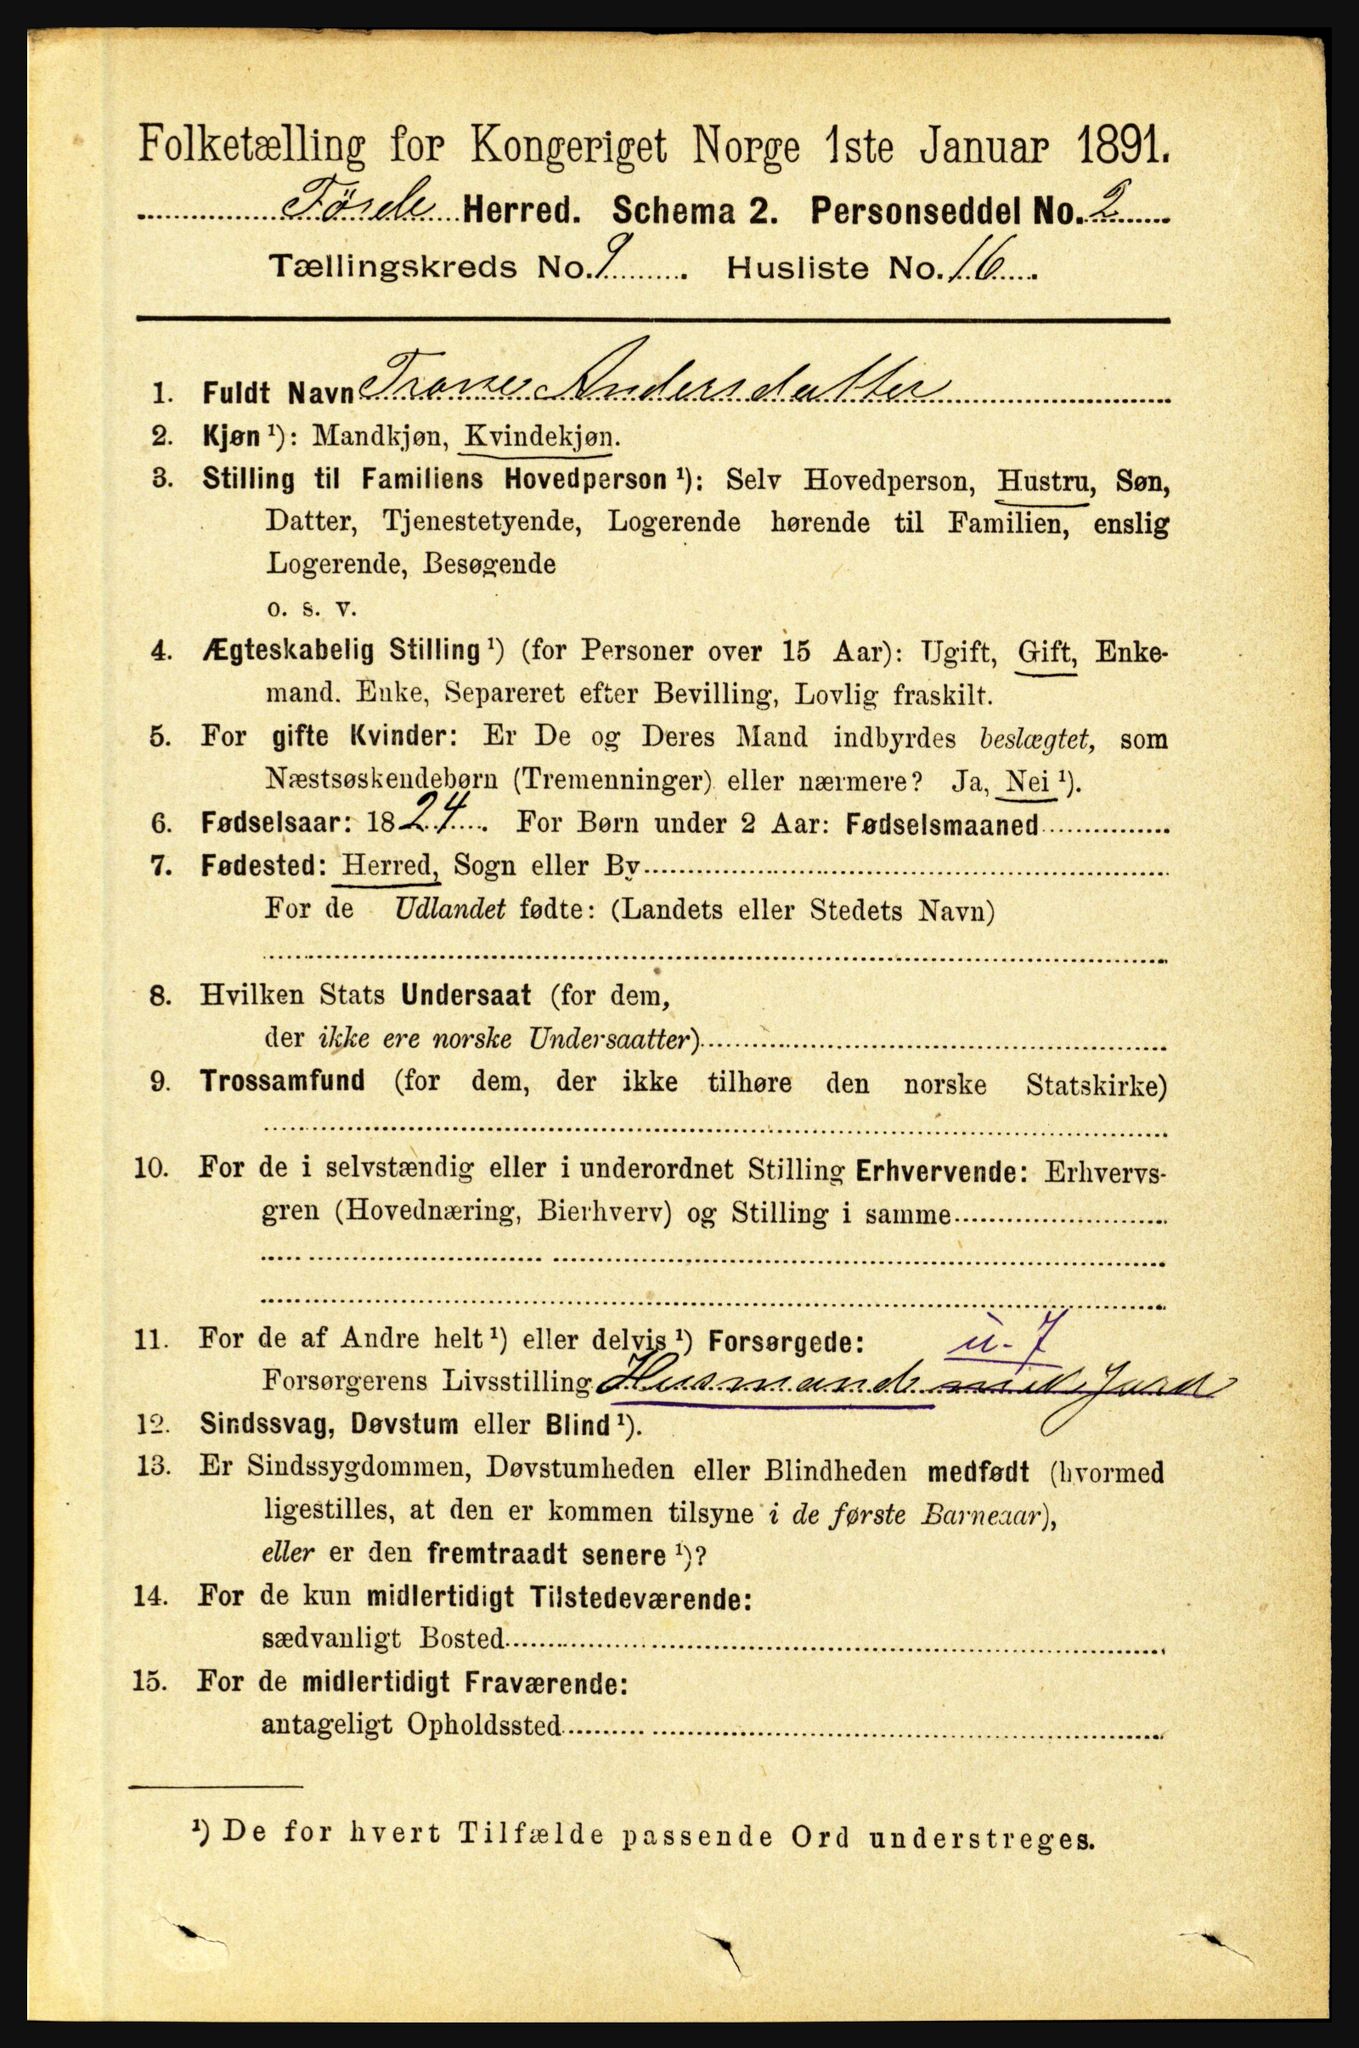 Folketælling for Kongeriget Norge 1ste Januar 1891.
Førde Herred. Schema 2. Personseddel No. 2
Tællingskreds No. 9. Husliste No. 16.
1. Fuldt Navn Andersdatter
2. Kjøn ¹): Mandkjøn, Kvindekjøn.
3. Stilling til Familiens Hovedperson ¹): Selv Hovedperson, Hustru, Søn,
Datter, Tjenestetyende, Logerende hørende til Familien, enslig
Logerende, Besøgende
o. s. v.
4. Ægteskabelig Stilling ¹) (for Personer over 15 Aar): Ugift, Gift, Enke-
mand. Enke, Separeret efter Bevilling, Lovlig fraskilt.
5. For gifte Kvinder: Er De og Deres Mand indbyrdes beslægtet, som
Næstsøskendebørn (Tremenninger) eller nærmere? Ja, Nei ¹).
6. Fødselsaar: 1824. For Børn under 2 Aar: Fødselsmaaned
7. Fødested: Herred, Sogn eller By
For de Udlandet fødte: (Landets eller Stedets Navn)
8. Hvilken Stats Undersaat (for dem,
der ikke ere norske Undersaatter)
9. Trossamfund (for dem, der ikke tilhøre den norske Statskirke)
10. For de i selvstændig eller i underordnet Stilling Erhvervende: Erhvervs-
gren (Hovednæring, Bierhverv) og Stilling i samme
11. For de af Andre helt ¹) eller delvis ¹) Forsørgede: u. J
Forsørgerens Livsstilling Husmand med Jord
12. Sindssvag, Døvstum eller Blind ¹).
13. Er Sindssygdommen, Døvstumheden eller Blindheden medfødt (hvormed
ligestilles, at den er kommen tilsyne i de første Barneaar),
eller er den fremtraadt senere ¹)?
14. For de kun midlertidigt Tilstedeværende:
sædvanligt Bosted
15. For de midlertidigt Fraværende:
antageligt Opholdssted
¹) De for hvert Tilfælde passende Ord understreges.